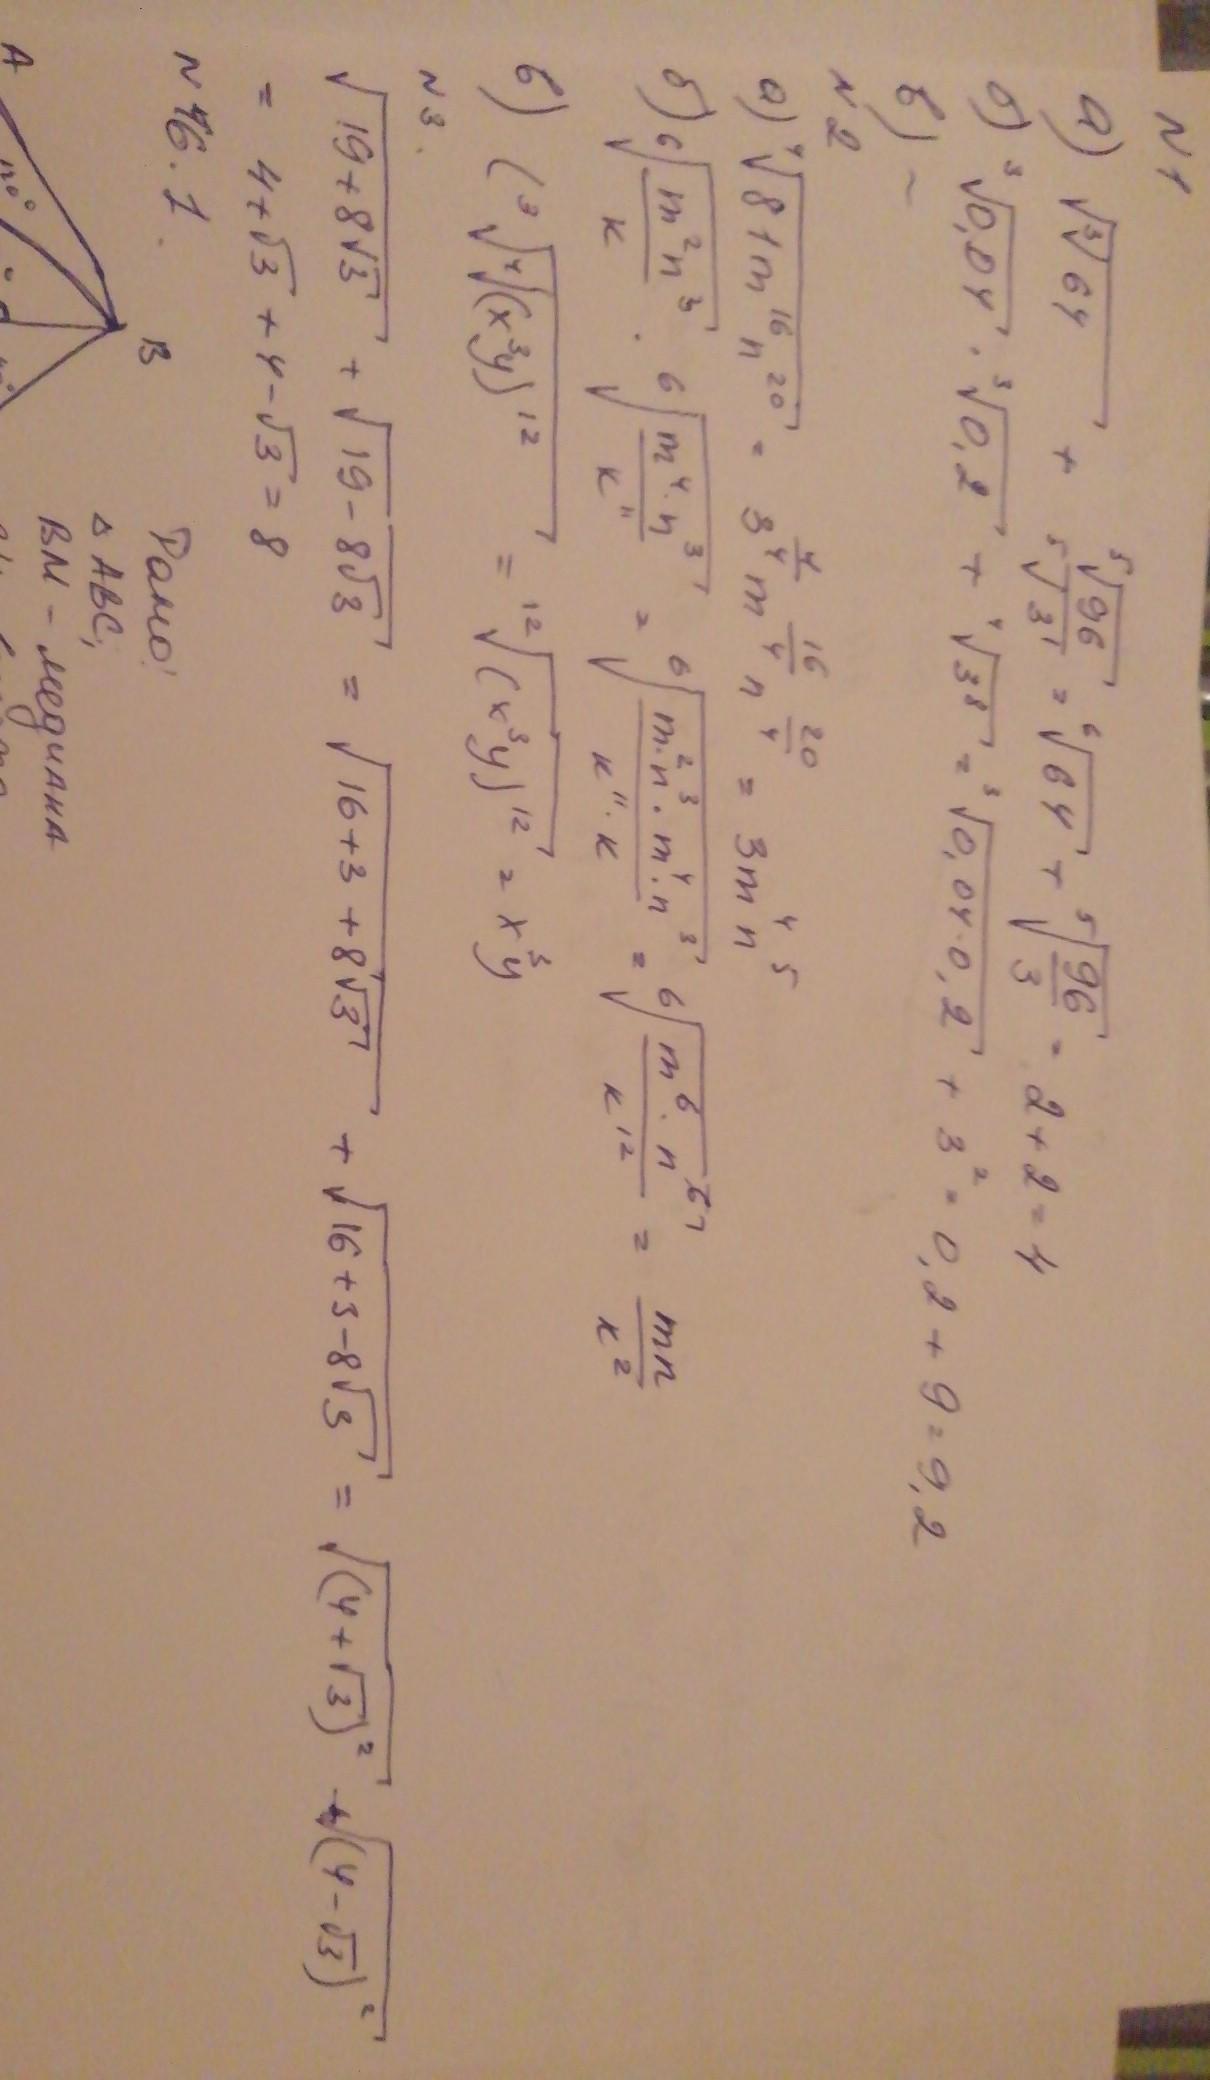 N 1
а) √∛64 + ⁵√96 / ⁵√3 = ⁶√64 + ⁵√(96/3) = 2+2=4
б) ³√0,04 · ³√0,2 + ⁴√3⁸ = ³√0,04·0,2 + 3² = 0,2 + 9 = 9,2
в) ~
N 2
а) ⁴√81m¹⁶n²⁰ = 3^(4/4) m^(16/4) n^(20/4) = 3m⁴n⁵
б) ⁶√(m²n³/к) · ⁶√(m⁴·n³/к¹¹) = ⁶√(m²·n³·m⁴·n³/к¹¹·к) = ⁶√(m⁶·n⁶/к¹²) = mn/к²
в) (³√⁴√(x³y)¹² = ¹²√(x³y)¹² = x³y
N 3.
√19+8√3 + √19-8√3 = √16+3+8√3 + √16+3-8√3 = √(4+√3)² + √(4-√3)²
= 4+√3 + 4-√3 = 8
N 46.1.
B
Дано:
△ABC,
BM - медиана
A
120°